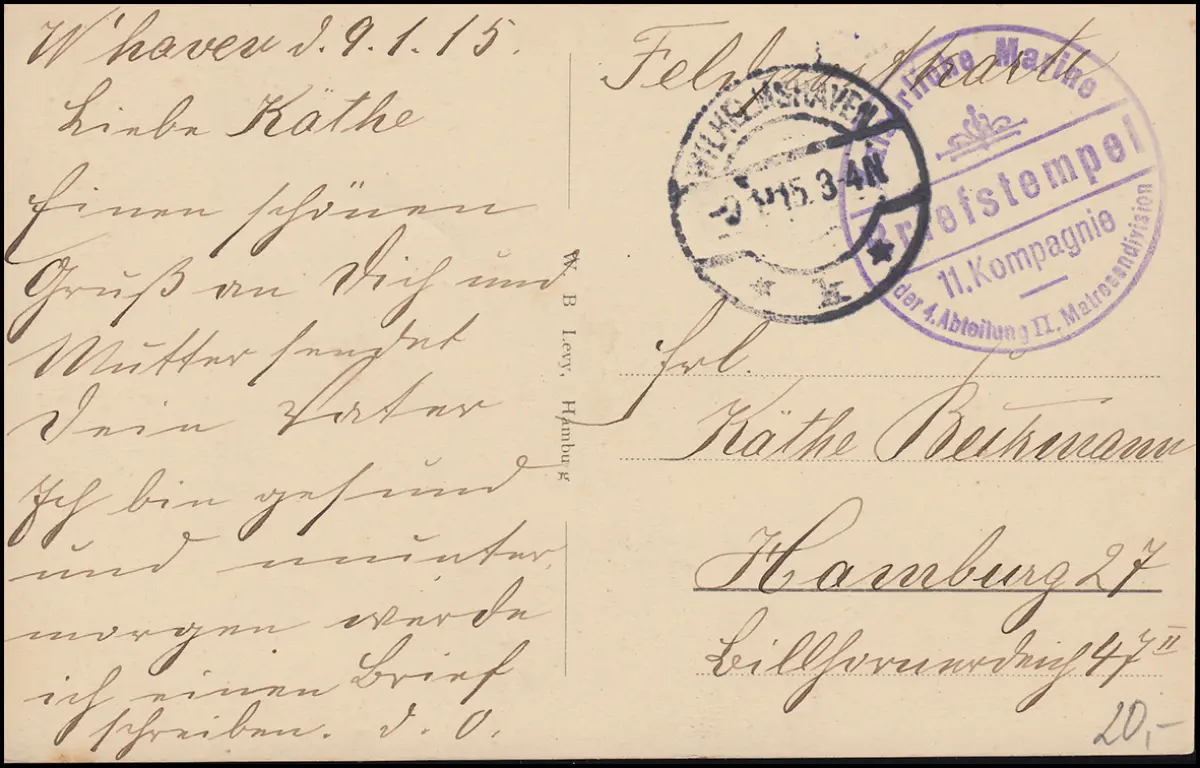 W'haven d. 9.1.15.
Liebe Käthe
Einen schönen
Gruß an Dich und
Mutter sendet
Dein Vater
Ich bin gesund
und munter,
morgen werde
ich einen Brief
schreiben. d. O.
W. B. Levy, Hamburg
Feldpostkarte
WILHELMSHAVEN
15. 3-4N
* k *
Kaiserliche Marine
Briefstempel
11. Kompagnie
der 4. Abteilung II. Matrosendivision
Frl.
Käthe Beckmann
Hamburg 27
Billhornerdeich 47 II
20,-